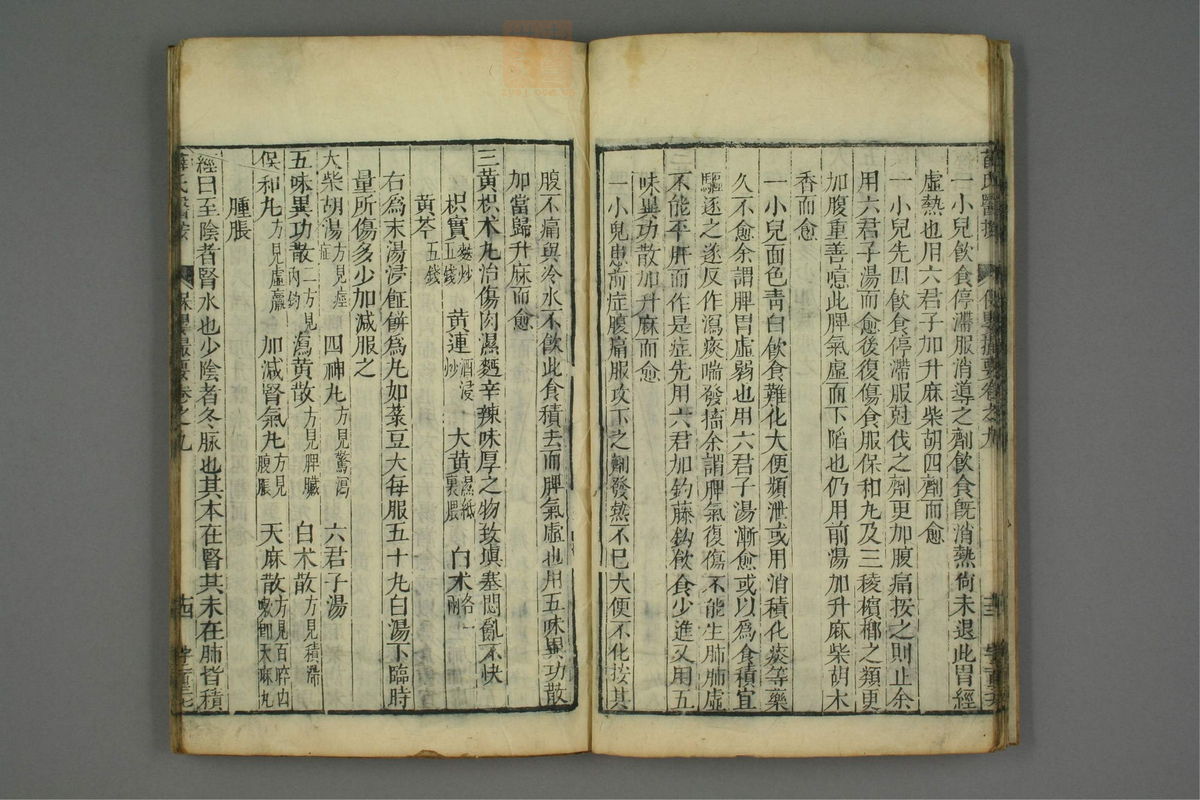 一小兒飲食停滯服消導之劑飲食旣消熱尙未退此胃經
虛熱也用六君子加升麻柴胡四劑而愈
一小兒先因飲食停滯服尅伐之劑更加腹痛按之則止余
用六君子湯而愈後復傷食服保和丸及三稜檳榔之類更
加腹重善噫此脾氣虛而下陷也仍用前湯加升麻柴胡木
香而愈
一小兒面色靑白飲食難化大便頻泄或用消積化痰等藥
久不愈余謂脾胃虛弱也用六君子湯漸愈或以爲食積宜
驅逐之遂反作瀉痰喘發搐余謂脾氣復傷不能生肺肺虛
不能平肝而作是症先用六君加鈎藤鈎飲食少進又用五
味異功散加升麻而愈
一小兒患前症腹痛服攻下之劑發熱不巳大便不化按其
腹不痛與冷水不飲此食積去而脾氣虛也用五味異功散
加當歸升麻而愈
三黃枳术丸治傷肉濕麵辛辣味厚之物致塡塞悶亂不快
枳實麩炒五錢 黃連酒浸炒 大黃濕紙裹煨 白术各一兩
黃芩五錢
右爲末湯浸飪餠爲丸如菉豆大每服五十丸白湯下臨時
量所傷多少加減服之
大柴胡湯方見痙症 四神丸方見驚瀉 六君子湯
五味異功散二方見內釣 瀉黃散方見脾臟 白术散方見積滯
保和丸方見虛羸 加減腎氣丸方見腹脹 天麻散方見百晬內嗽卽天麻丸
腫脹
經曰至陰者腎水也少陰者冬脉也其本在腎其末在肺皆積
薛氏醫按 保嬰撮要卷之九 十四